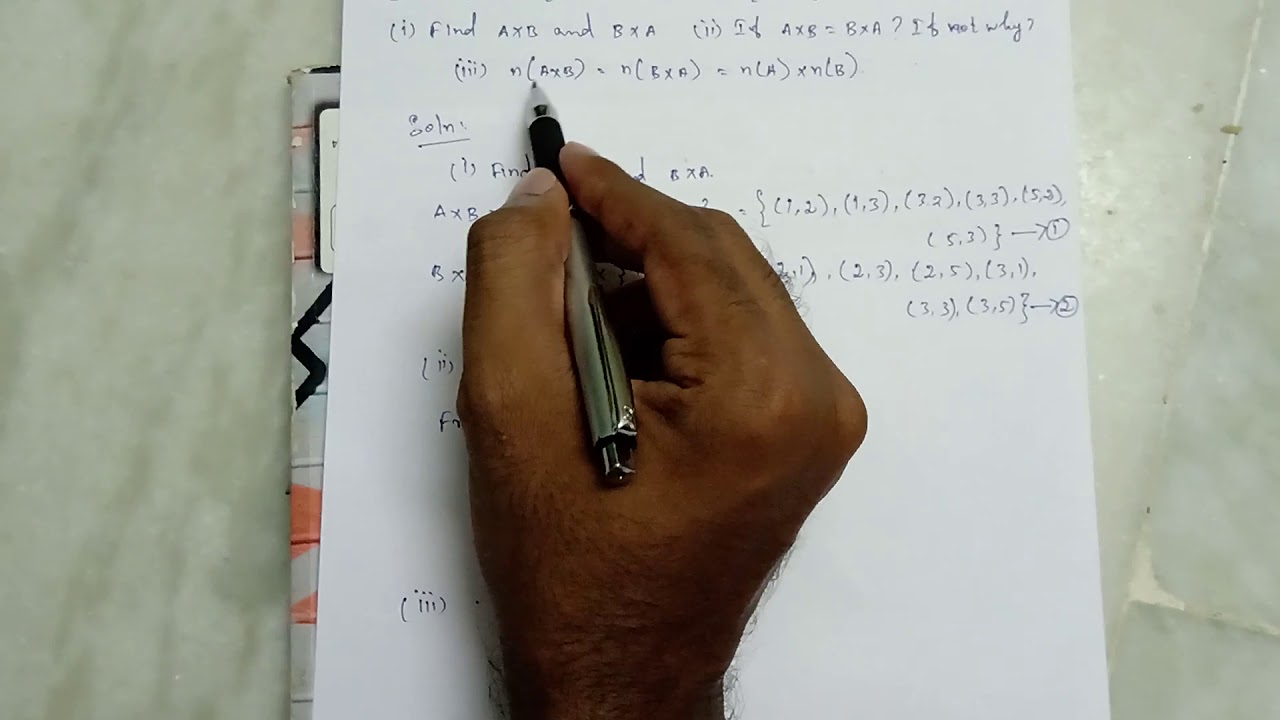 (i) Find A×B and B×A (ii) If A×B = B×A? If not why?
(iii) n(A×B) = n(B×A) = n(A) × n(B)
Soln:
(i) Find B×A.
A×B = {(1,2), (1,3), (3,2), (3,3), (5,2),
(5,3)} → ①
,1), (2,3), (2,5), (3,1),
(3,3), (3,5)} → ②
(ii)
(iii)